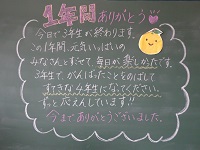 1年間ありがとう
今日で3年生が終わります。
この1年間、元気いっぱいの
みなさんとすごせて毎日が楽しかったです。
3年生で、がんばったことをのばして
すてきな4年生になってください。
ずっと応えんしています!!
今までありがとうございました。